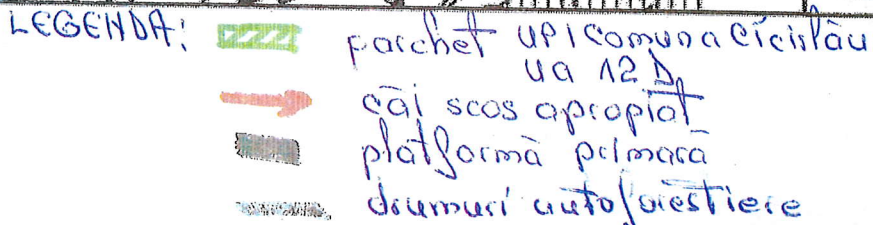 LEGENDA:
parchet UP I Comuna Cîcîrlău
ua 12 D
căi scos apropiat
platformă primară
drumuri autoforestiere